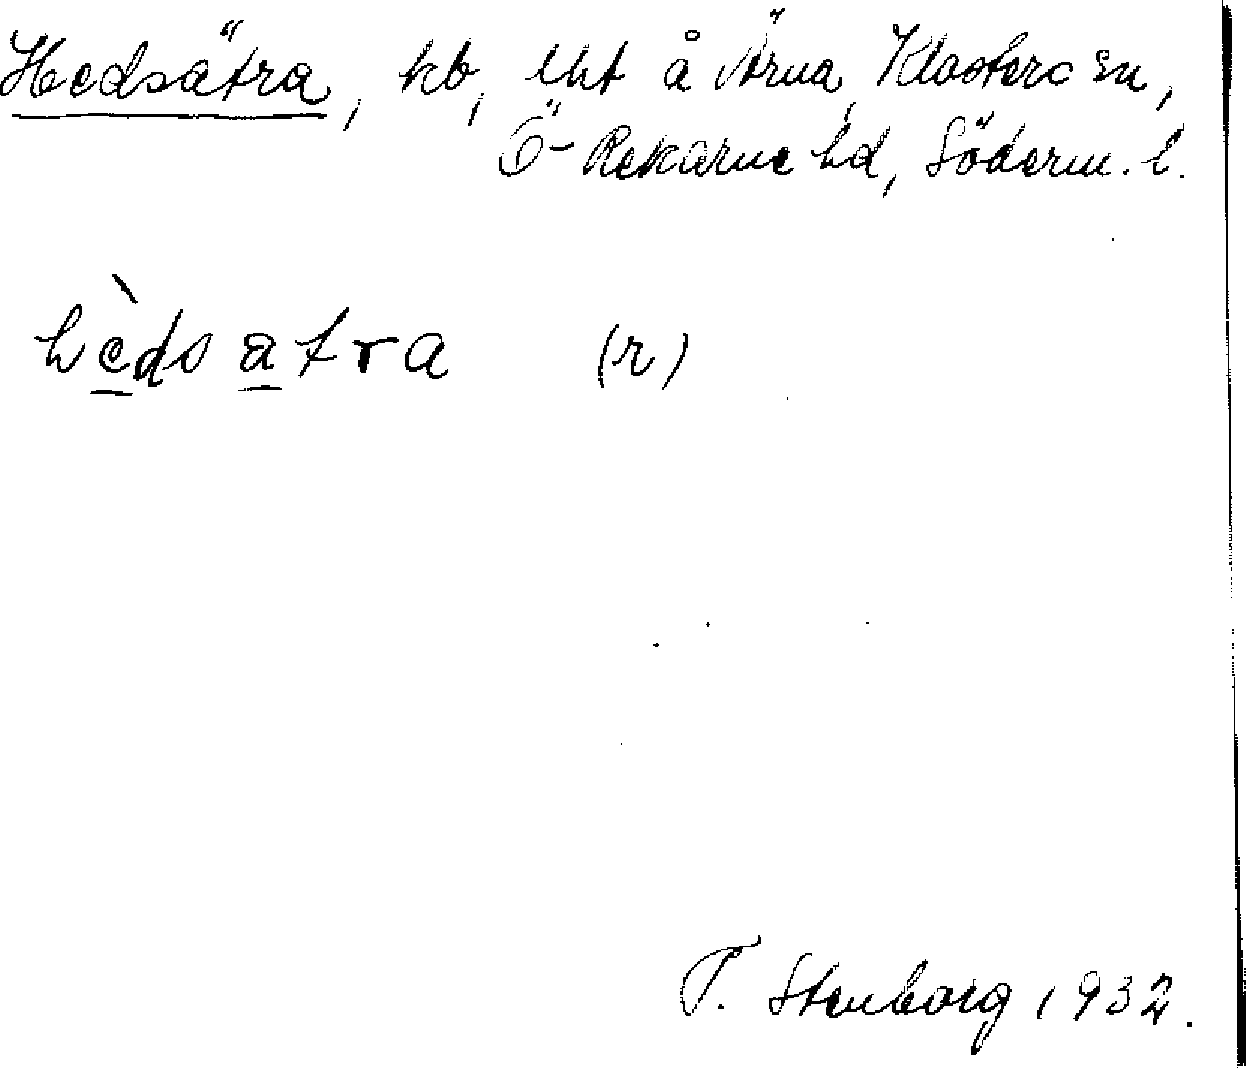 Hedsätra, kb, lht å Ärna, Klosters sn,
Ö-Rekarne hd, Söderm. l.
hèdsatra (r)
T. Stenborg 1932.